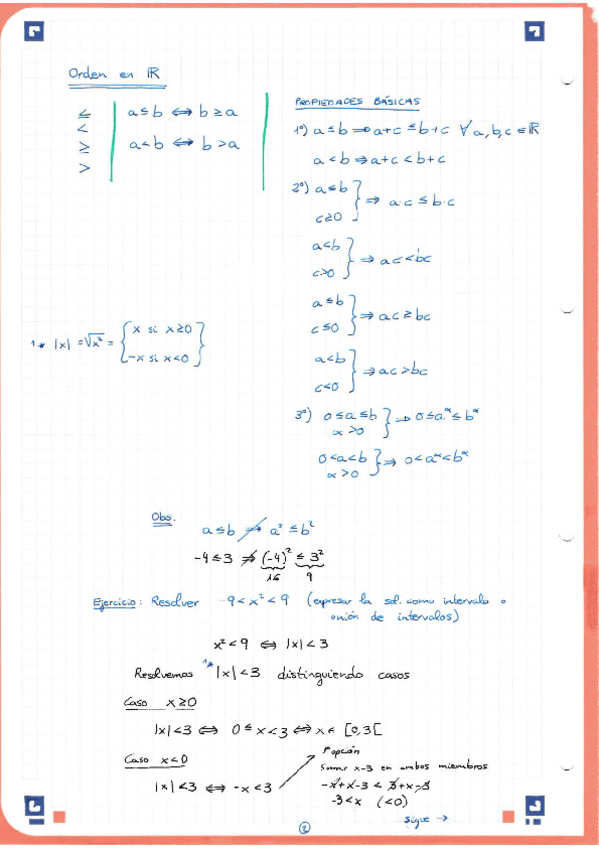 Orden en ℝ
≤
<
≥
>
a ≤ b ⟺ b ≥ a
a < b ⟺ b > a
PROPIEDADES BÁSICAS
1º) a ≤ b ⟹ a+c ≤ b+c ∀ a, b, c ∈ ℝ
a < b ⟹ a+c < b+c
2º) a ≤ b
c ≥ 0 } ⟹ a·c ≤ b·c
a < b
c > 0 } ⟹ ac < bc
a ≤ b
c ≤ 0 } ⟹ ac ≥ bc
a < b
c < 0 } ⟹ ac > bc
1* |x| = √x² = { x si x ≥ 0
-x si x < 0 }
3º) 0 ≤ a ≤ b
α > 0 } ⟹ 0 ≤ a^α ≤ b^α
0 < a < b
α > 0 } ⟹ 0 < a^α < b^α
Obs.
a ≤ b ⇏ a² ≤ b²
-4 ≤ 3 ⇏ (-4)² ≤ 3²
16 9
Ejercicio: Resolver -9 < x² < 9 (expresar la sol. como intervalo o
unión de intervalos)
x² < 9 ⟺ |x| < 3
Resolvemos 1* |x| < 3 distinguiendo casos
Caso x ≥ 0
|x| < 3 ⟺ 0 ≤ x < 3 ⟺ x ∈ [0, 3[
Caso x < 0
|x| < 3 ⟺ -x < 3
1ª opción
Sumar x-3 en ambos miembros
-x + x - 3 < 3 + x - 3
-3 < x (< 0)
sigue →
2